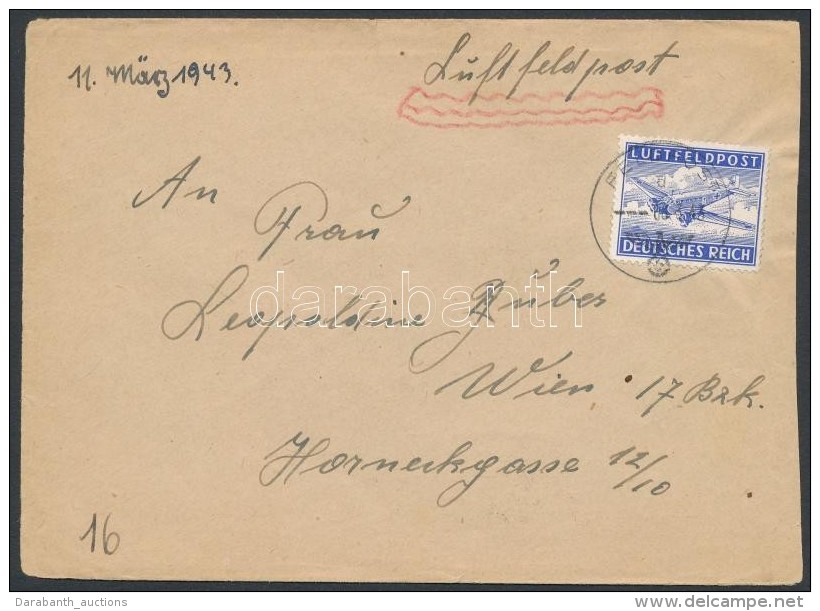 11. März 1943.
Luftfeldpost
LUFTFELDPOST
DEUTSCHES REICH
An
Frau
Leopoldine Huber
Wien 17 Bzk.
Horneckgasse 12/10
16
darabanth
Darabanth_auctions